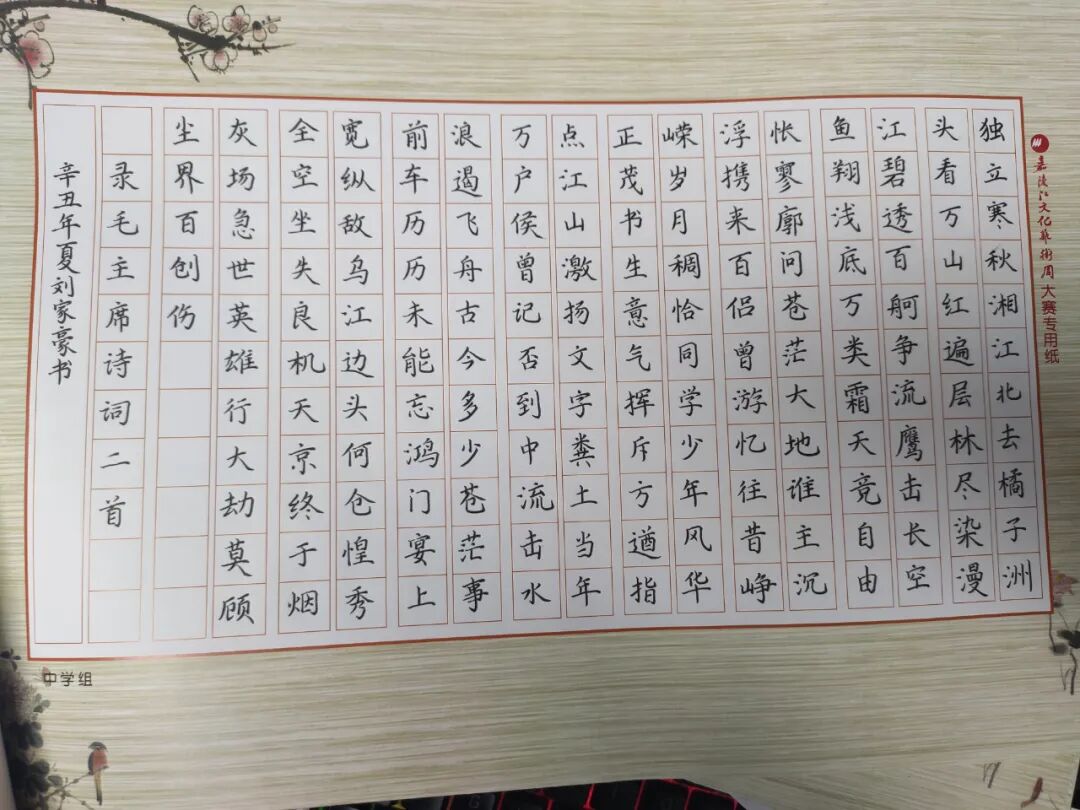 嘉陵江文化藝術周 大赛专用纸
独立寒秋湘江北去橘子洲
头看万山红遍层林尽染漫
江碧透百舸争流鹰击长空
鱼翔浅底万类霜天竟自由
怅寥廓问苍茫大地谁主沉
浮携来百侣曾游忆往昔峥
嵘岁月稠恰同学少年风华
正茂书生意气挥斥方遒指
点江山激扬文字粪土当年
万户侯曾记否到中流击水
浪遏飞舟古今多少苍茫事
前车历历未能忘鸿门宴上
宽纵敌乌江边头何仓惶秀
全空坐失良机天京终于烟
灰场急世英雄行大劫莫顾
尘界百创伤
录毛主席诗词二首
辛丑年夏刘家豪书
中学组